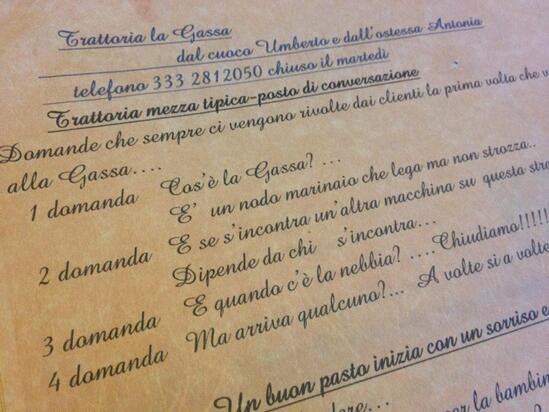 Trattoria la Gassa
dal cuoco Umberto e dall'ostessa Antonia
telefono 333 2812050 chiuso il martedì
Trattoria mezza tipica-posto di conversazione
Domande che sempre ci vengono rivolte dai clienti la prima volta che
alla Gassa....
1 domanda Cos'è la Gassa? ...
E' un nodo marinaio che lega ma non strozza..
2 domanda E se s'incontra un'altra macchina su questa
Dipende da chi s'incontra...
3 domanda E quando c'è la nebbia? ....Chiudiamo!!!!!
4 domanda Ma arriva qualcuno?... A volte si a volte
Un buon pasto inizia con un sorriso e
per la